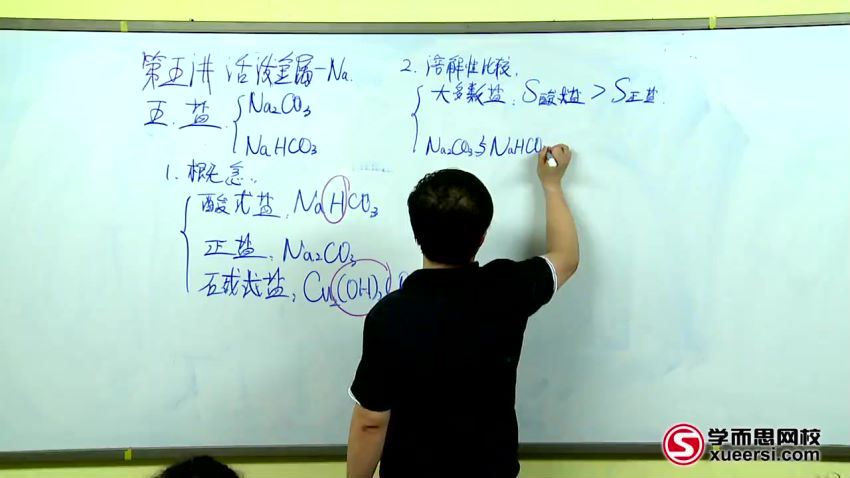 第五讲 活泼金属-Na.
五. 盐 { Na₂CO₃
NaHCO₃
1. 概念:
酸式盐: NaHCO₃
正盐: Na₂CO₃
碱式盐: Cu₂(OH)₂
2. 溶解性比较.
大多数盐: S酸式盐 > S正盐.
Na₂CO₃与NaHCO
学而思网校
xueersi.com